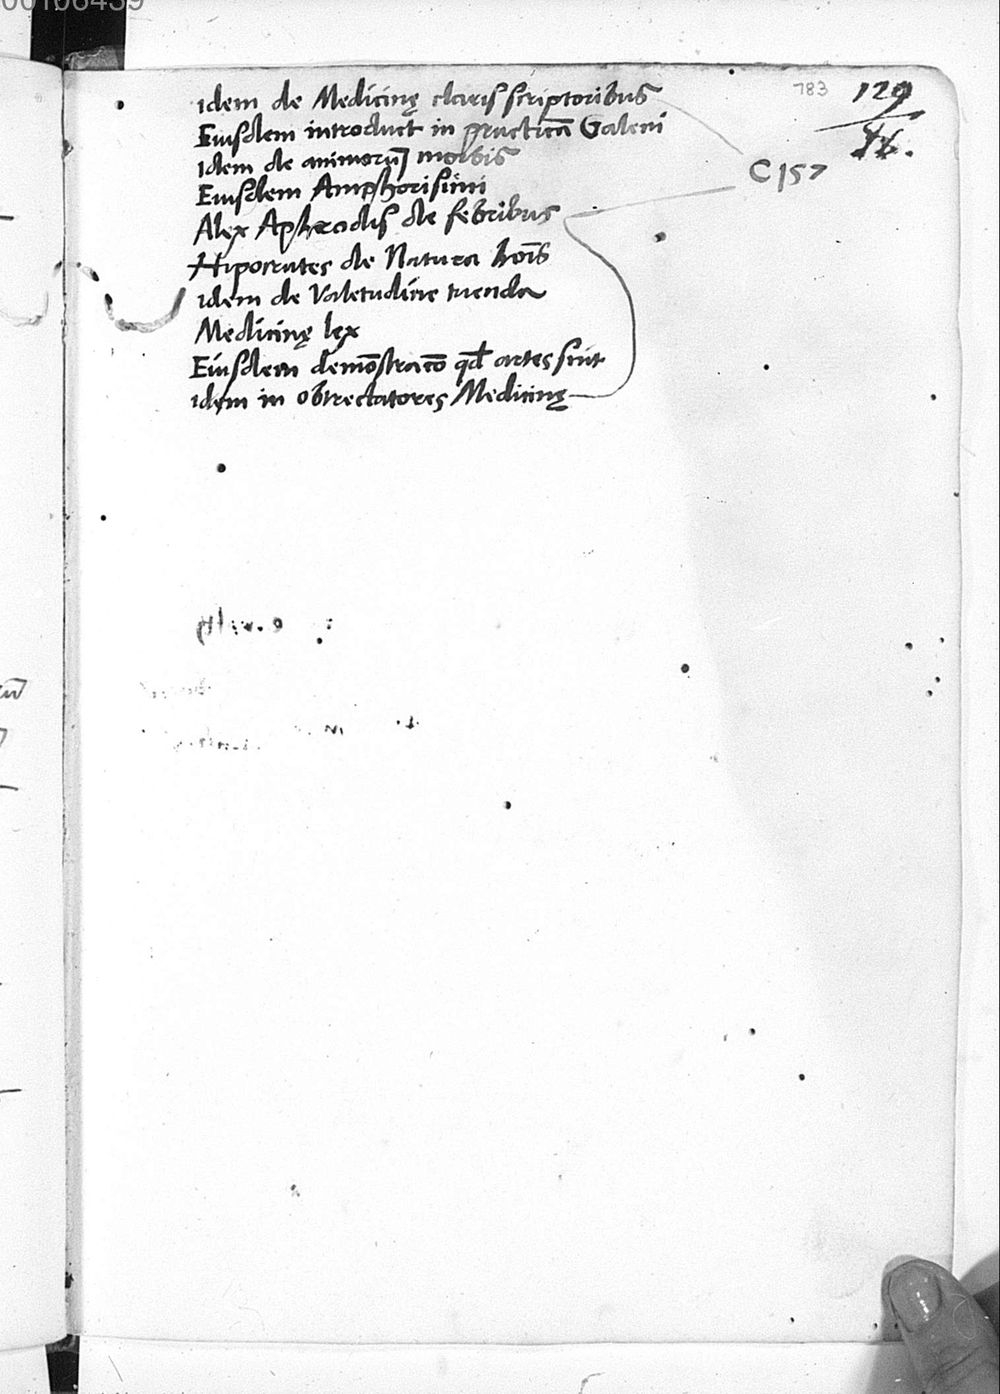 00106439
783
129
C 157
idem de Medicinę claris scriptoribus
Eiusdem introduct in practicā Galeni
Idem de animorū morbis
Eiusdem Amphorisimi
Alex Aphrodis de febribus
Hipocrates de Natura hoīs
idem de Valetudine tuenda
Medicinę lex
Eiusdem demōstracō qd artes sint
idem in obtrectatores Medicinę